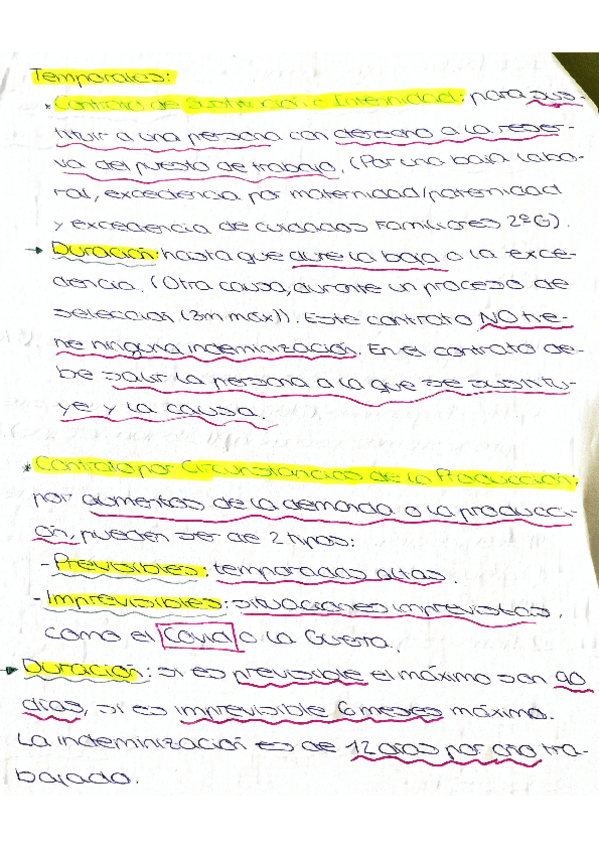 Temporales:
* Contrato de Sustitución o Interinidad: para sus-
tituir a una persona con derecho a la reser-
va del puesto de trabajo. (Por una baja labo-
ral, excedencia por maternidad/paternidad
y excedencia de cuidados Familiares 2ºG).
→ Duración: hasta que dure la baja o la exce-
dencia. (Otra causa, durante un proceso de
selección (3m máx)). Este contrato NO tie-
ne ninguna indeminización. En el contrato de-
be salir la persona a la que se sustitu-
ye y la causa.
* Contrato por Circunstancias de la Producción:
por aumentos de la demanda o la producci-
ón, pueden ser de 2 tipos:
- Previsibles: temporadas altas.
- Imprevisibles: situaciones imprevistas,
como el Covid o la Guerra.
→ Duración: si es previsible el máximo son 90
días, si es imprevisible 6 meses máximo.
La indeminización es de 12 días por año tra-
bajado.